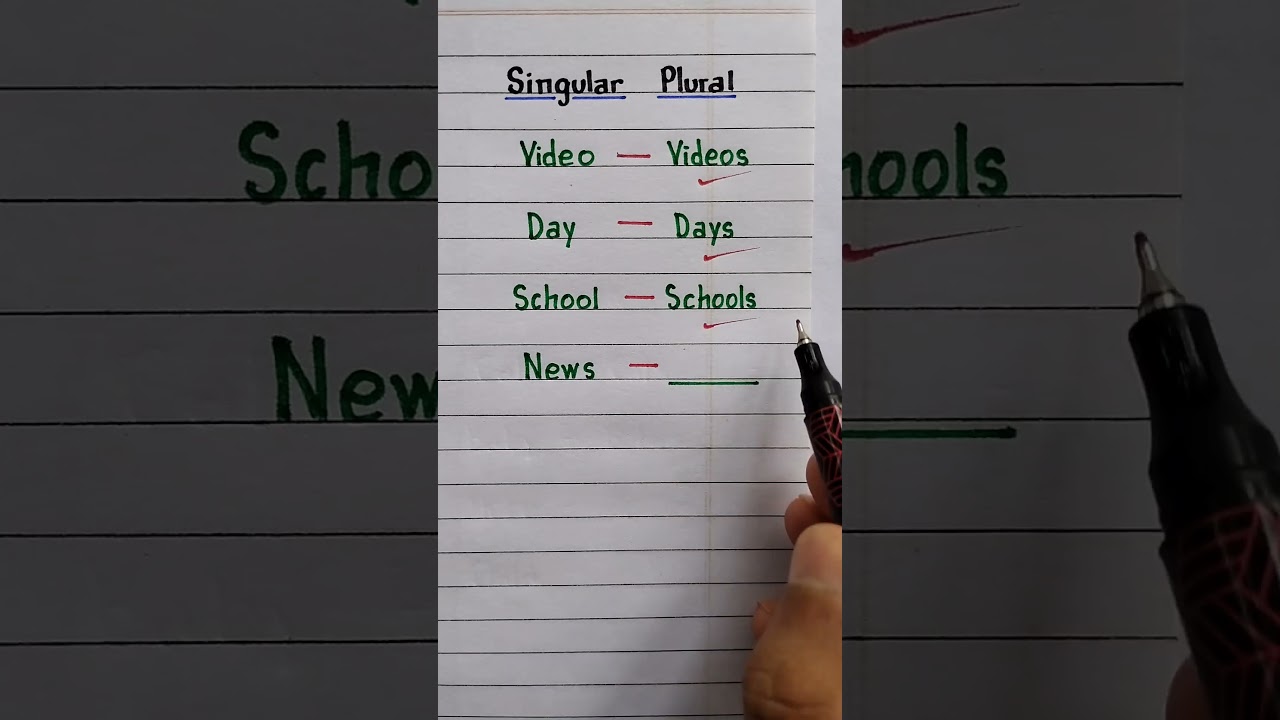 Singular Plural
Video – Videos
Day – Days
School – Schools
News – ______